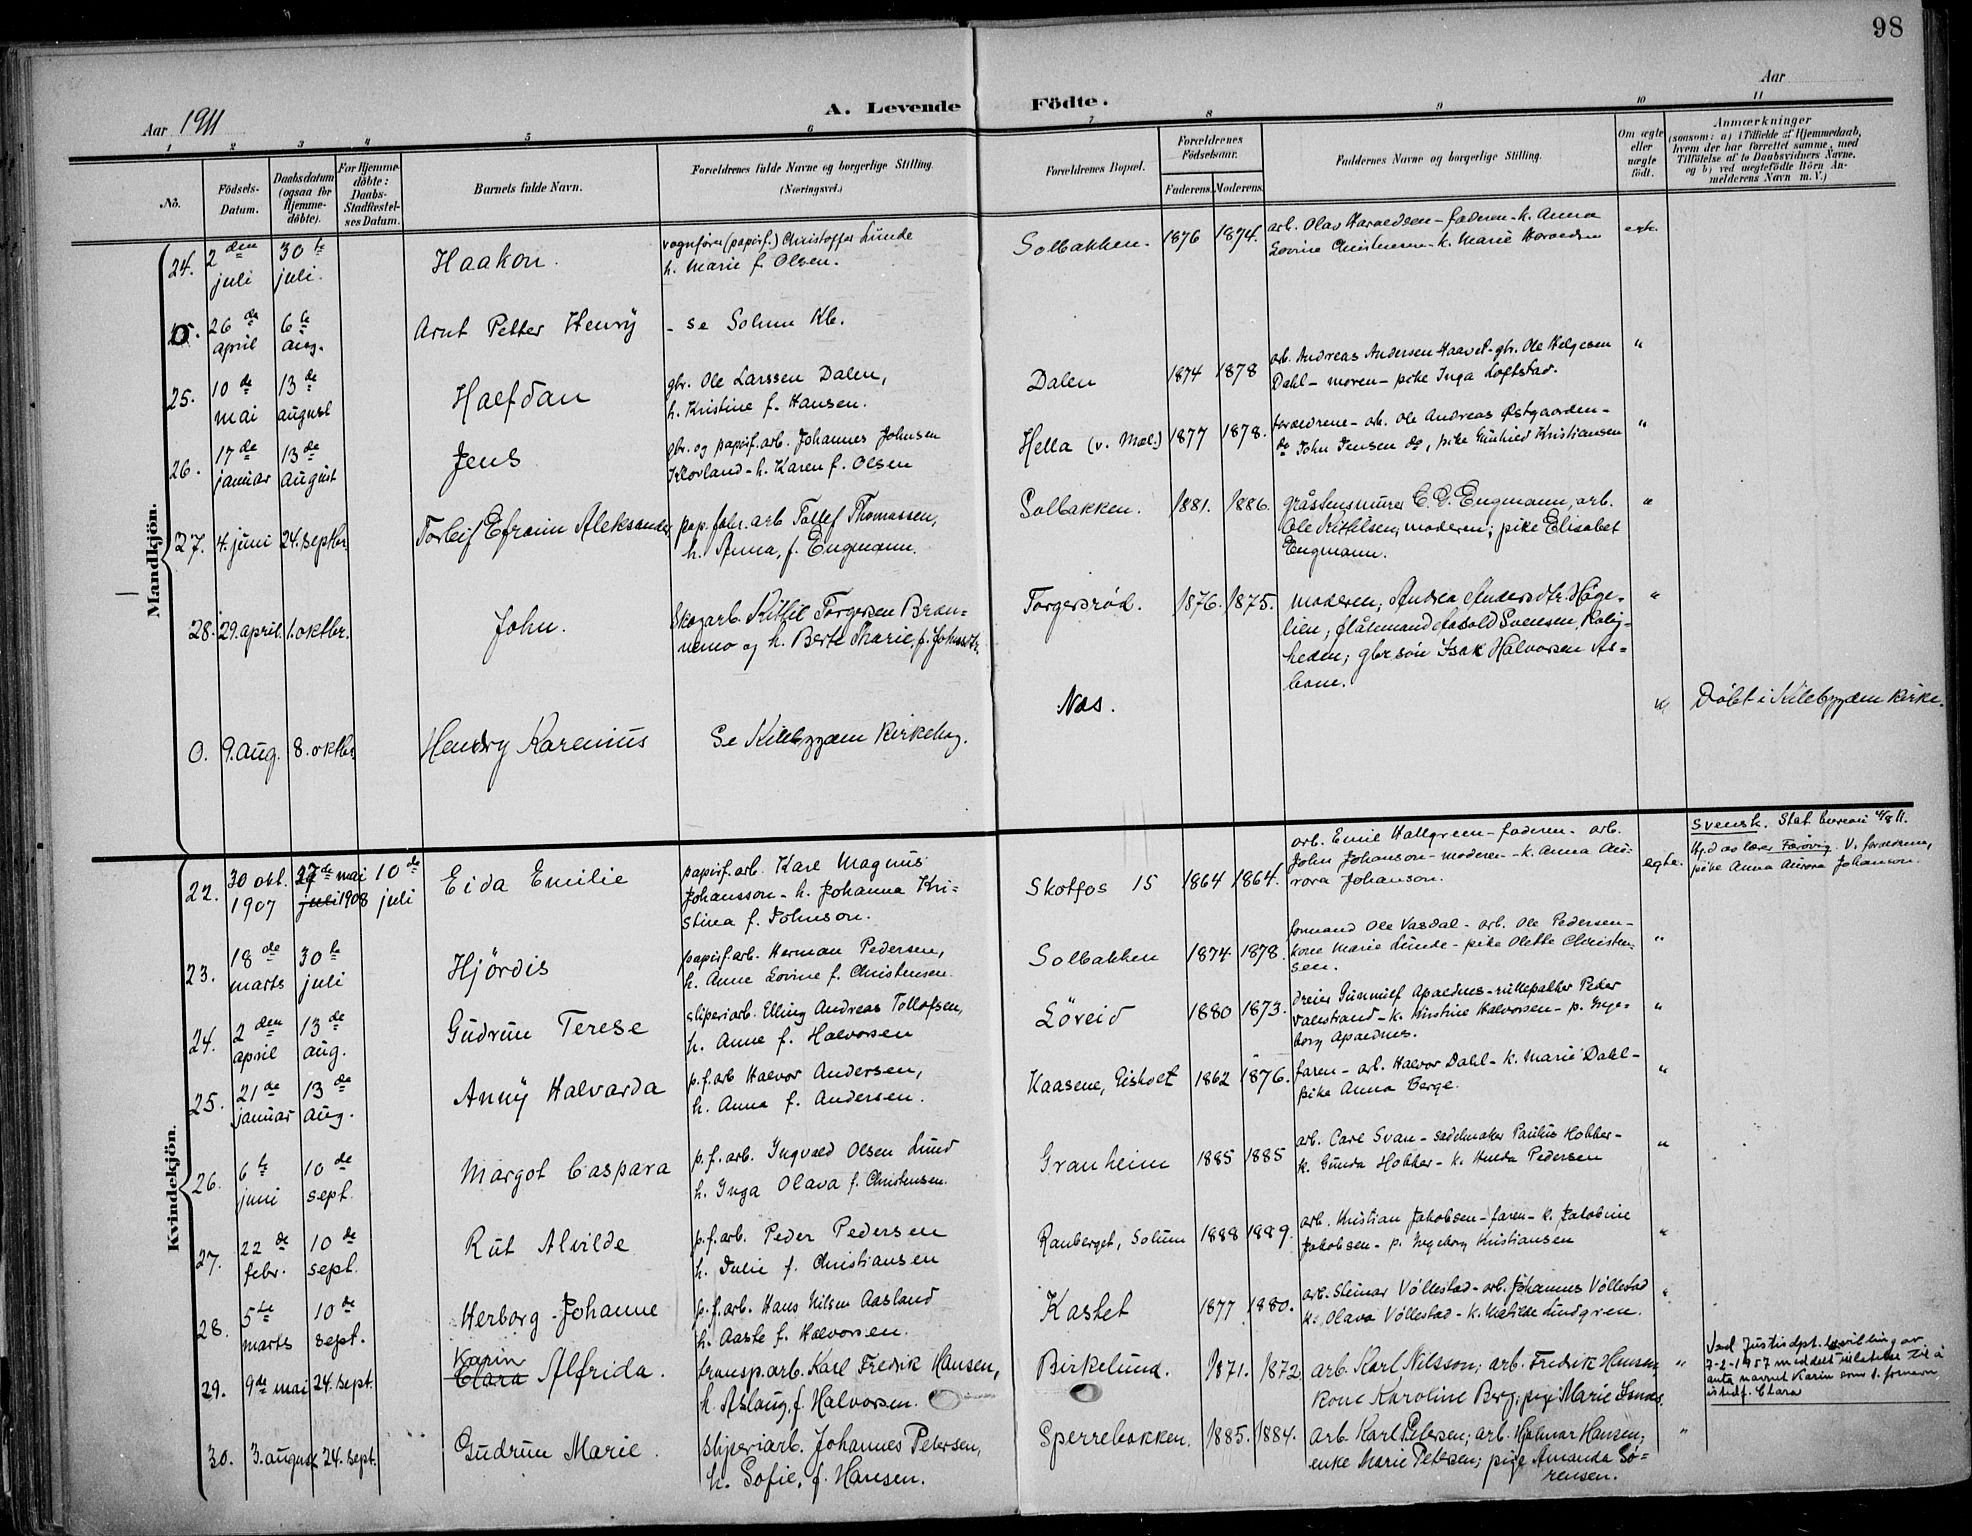 98
Aar 1911
A. Levende Födte.
Aar
1 2 3 4 5 6 7 8 9 10 11
No.
Födsels-Datum.
Daabsdatum (ogsaa for Hjemmedöbte).
For Hjemmedöbte: Daabs-Stadfæstelses Datum.
Barnets fulde Navn.
Forældrenes fulde Navne og borgerlige Stilling (Næringsvei.)
Forældrenes Bopæl.
Forældrenes Födselsaar.
Faderens. Moderens.
Faddernes Navne og borgerlige Stilling.
Om ægte eller uægte födt.
Anmærkninger
(saasom: a) i Tilfælde af Hjemmedaab, hvem der har forrettet samme, med Tilföielse af to Daabsvidners Navne, og b) ved uægtefödte Börn Anmelderens Navn m. V.)
Mandkjön.
24. 2den juli 30te juli. Haakon.
vognfører (papirf.) Christoffer Lunde
h. Marie f. Olsen.
Solbakken. 1876 1874.
arb. Olav Haraldsen - faderen - k. Anna
Lovine Christensen - k. Marie Haraldsen
egte.
0. 26de april 6te aug. Arnt Petter Henry - se Solum Kb.
25. 10de mai 13de august Halfdan
gbr. Ole Larssen Dalen,
h. Kristine f. Hansen.
Dalen 1874 1878
arb. Andreas Andersen Haavet - gbr. Ole Helgesen
Dahl - moren - pike Inga Loftstad.
"
26. 17de januar 13de august Jens
gbr. og papirf.arb. Johannes Johnsen
Klovland - h. Karen f. Olsen
Hella (v. Mæl.) 1877 1878.
forældrene - arb. Ole Andreas Østgaarden -
do John Jensen do, pike Gunhild Kristiansen
"
27. 4. juni 24. septbr. Torleif Efraim Aleksander
pap. fabr. arb Tollef Thomassen,
h. Anna, f. Engmann.
Solbakken. 1881. 1886.
gråstensmurer C. G. Engmann, arb.
Ole Kittelsen, moderen; pike Elisabet
Engmann.
"
28. 29. april. 1. oktbr. John.
Skogarb. Kittil Torgersen Bran-
nemo og h. Berte Marie, f. Johnsdtr.
Torgersrød. 1876. 1875.
moderen; Andrea Andersdtr. Häge-
lien; flåtemand Aasold Svensen, Rolig-
heden; gbr.søn Isak Halvorsen As-
bone.
"
0. 9. aug. 8. oktbr. Hendry Karenius
Se Kilebygden kirkebog.
Nas.
" Döbt i Kilebygden kirke.
Kvindekjön.
22. 30 okt. 1907 27de mai juli 1908 10de juli Eida Emilie
papirf.arb. Karl Magnus
Johansson - h. Johanna Kri-
stina f. Johnson.
Skotfos 15 1864 1864.
arb. Emil Hallgreen - faderen - arb.
John Johanson - moderen - k. Anna Au-
rora Johanson.
egte.
Svensk. Stat. bureau 4/8 11.
Hj.d av lærer Farövig. V. forældrene,
pike Anna Aurora Johanson.
23. 18de marts 30te juli Hjördis
papirf.arb. Herman Pedersen,
h. Anne Lovine f. Christensen.
Solbakken 1874 1878.
formand Ole Vasdal - arb. Ole Pedersen -
kone Marie Lunde - pike Olette Christen-
sen.
"
24. 2den april 13de aug. Gudrun Terese
sliperiarb. Elling Andreas Tollofsen,
h. Anne f. Halvorsen
Löveid 1880 1873.
dreier Gunnulf Apaldnes - rullepakker Peder
Valestrand - k. Kirstine Halvorsen - p. Inge-
borg Apaldnes.
"
25. 21de januar 13de aug. Anny Halvarda
p.f.arb Halvor Andersen,
h. Anna f. Andersen.
Kaasene, Eisholt 1862 1876.
faren - arb. Halvor Dahl - k. Marie Dahl -
pike Anna Berge.
"
26. 6te juni 10de sept. Margot Caspara
p.f.arb. Ingvald Olsen Lund
h. Inga Olava f. Christensen.
Granheim 1885 1885
arb. Carl Svan - sadelmaker Paulus Hobber -
k. Gunda Hobber - k. Hulda Pedersen
"
27. 22de febr. 10de sept. Rut Alvilde
p.f.arb. Peder Pedersen
h. Julie f. Christiansen
Rauberget, Solum 1888 1889.
arb. Kristian Jakobsen - faren - k. Jakobine
Jakobsen - p. Ingeborg Kristiansen
"
28. 5te marts 10de sept. Herborg Johanne
p.f.arb. Hans Nilsen Aasland
h. Aaste f. Halvorsen.
Kastet 1877 1880.
arb. Steinar Völlestad - arb. Johannes Völlestad
k. Olava Völlestad - k. Matilde Lindgren.
"
29. 9de mai 24. sept. Karin Clara Alfrida.
transp.arb. Karl Fredrik Hansen,
h. Aslaug, f. Halvorsen.
Birkelund. 1871. 1872
arb. Karl Nilsson; arb. Fredrik Hansen,
kone Karoline Berg; pige Marie Isnes.
"
Ved Justisdpt. bevilling av
7-2-1957 meddelt tillatelse til å
anta navnet Karin som 1. fornavn
istedf. Clara
30. 3. august 24. sept. Gudrun Marie.
sliperiarb. Johannes Petersen,
h. Sofie, f. Hansen.
Sperrebakken. 1885. 1884.
arb. Karl Petersen; arb. Hjalmar Hansen;
enke Marie Petersen; pige Amanda Sö-
rensen.
"